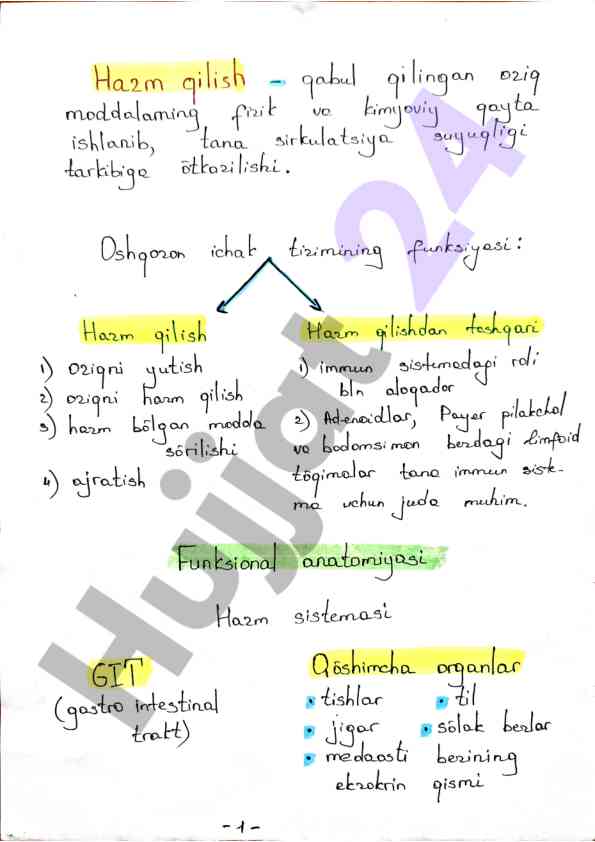 Hazm qilish - qabul qilingan oziq
moddalarning fizik va kimyoviy qayta
ishlanib, tana sirkulatsiya suyuqligi
tarkibiga ötkazilishi.
Oshqozon ichak tizimining funksiyasi:
Hazm qilish
1) oziqni yutish
2) oziqni hazm qilish
3) hazm bölgan modda
sörilishi
4) ajratish
Hazm qilishdan tashqari
1) immun sistemadagi roli
bln aloqador
2) Adenoidlar, Payer pilakchal
va bodomsimon bezdagi limfoid
töqimalar tana immun siste-
ma uchun juda muhim.
Funksional anatomiyasi
Hazm sistemasi
GIT
(gastro intestinal
trakt)
Qöshimcha organlar
• tishlar • til
• jigar • sölak bezlar
• medaosti bezining
ekzokrin qismi
-1-
Hujjat 24